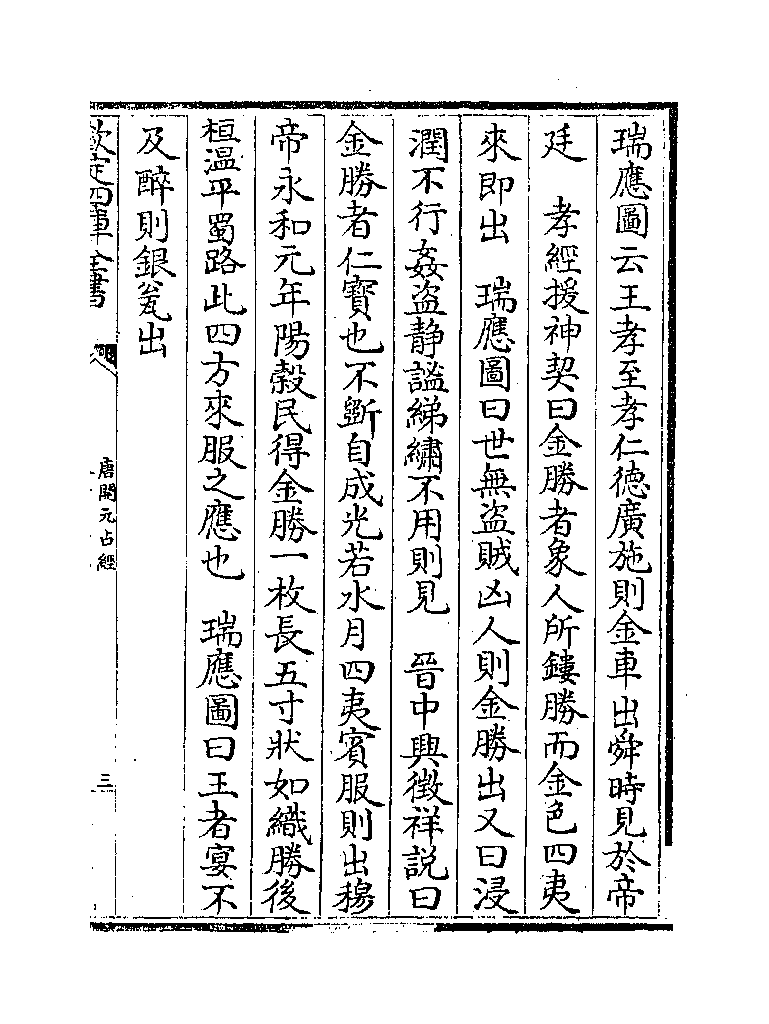 瑞應圖云王孝至孝仁德廣施則金車出舜時見於帝
廷　孝經援神契曰金勝者象人所鏤勝而金色四夷
來即出　瑞應圖曰世無盗賊凶人則金勝出又曰浸
潤不行姦盗静謐綈繡不用則見　晉中興徴祥説曰
金勝者仁寳也不斵自成光若水月四夷賓服則出穆
帝永和元年陽穀民得金勝一枚長五寸狀如織勝後
桓温平蜀路此四方來服之應也　瑞應圖曰王者宴不
及醉則銀瓮出
欽定四庫全書
唐開元占經
三